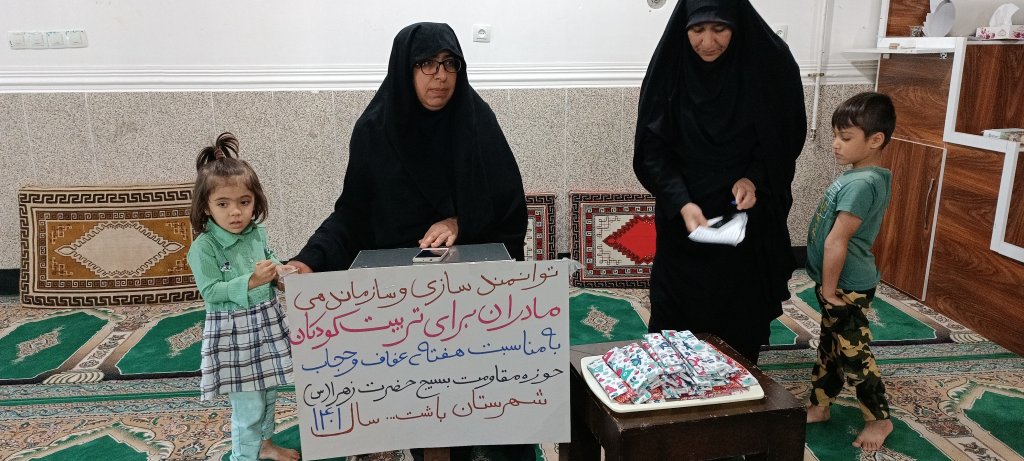 توانمند سازی و سازماندهی
مادران برای تربیت کودکان
با مناسبت هفته ی عفاف و حجاب
حوزه مقاومت بسیج حضرت زهرا (س)
شهرستان باشت... سال ۱۴۰۱